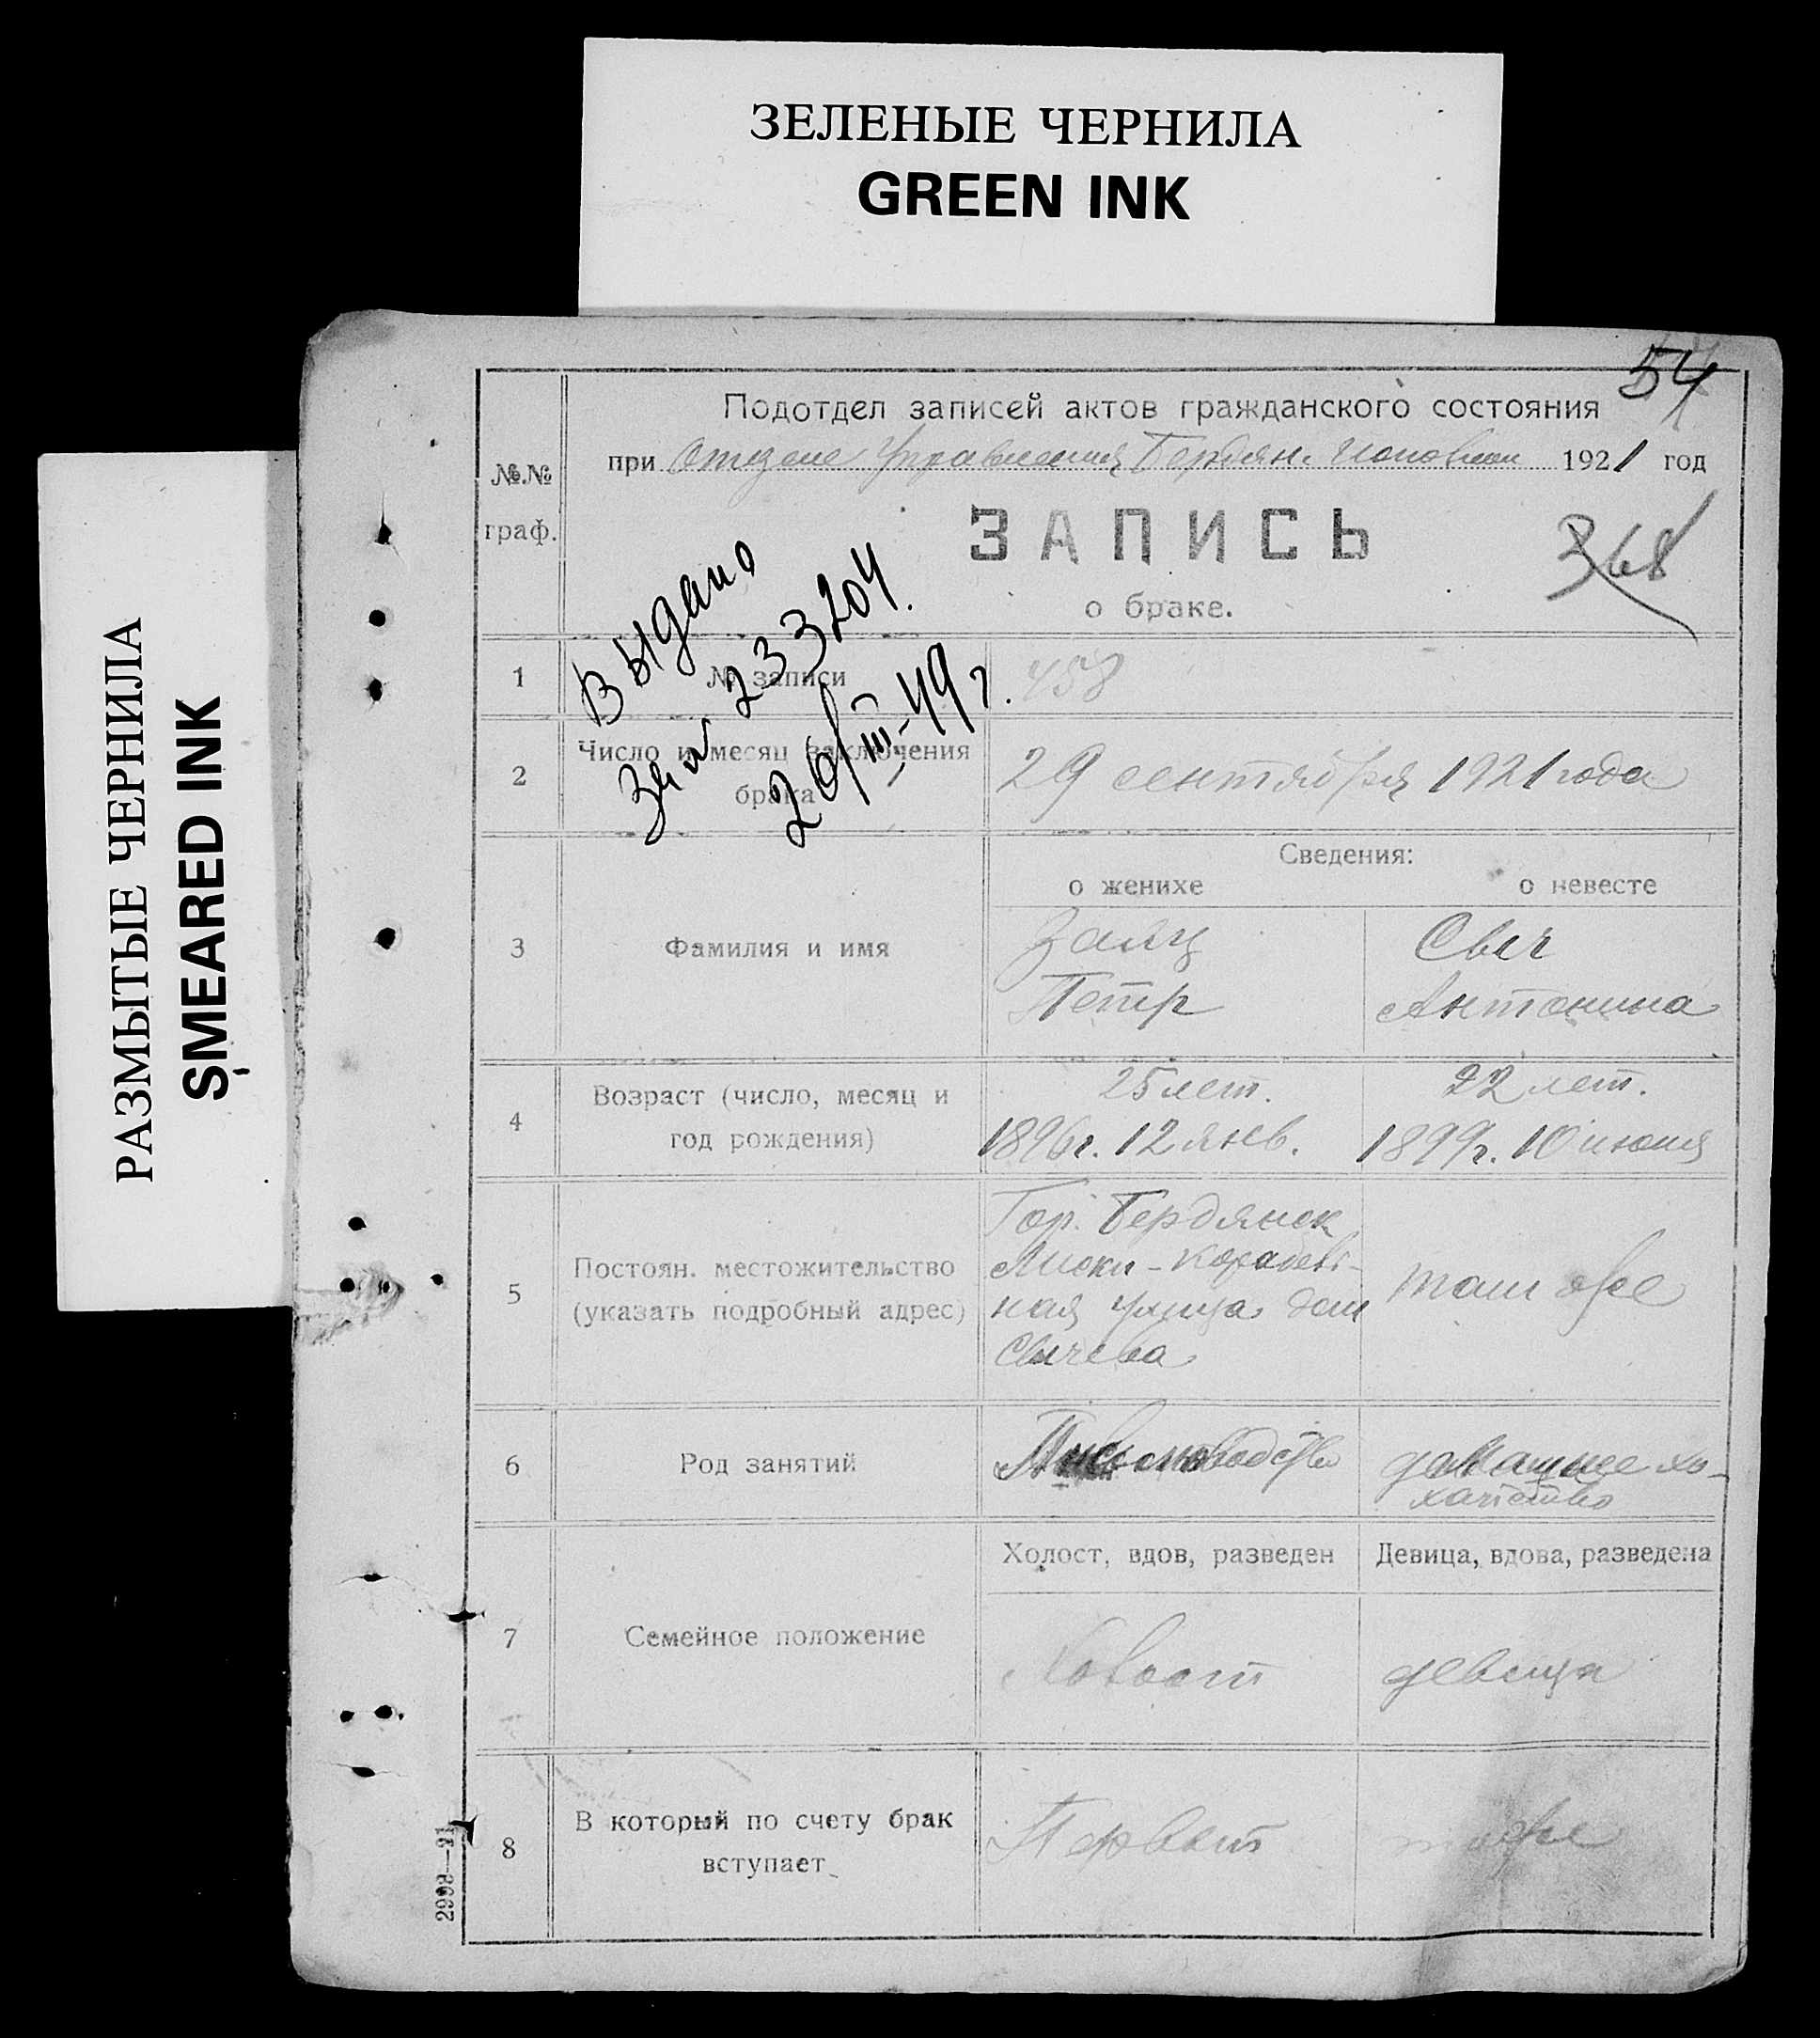 ЗЕЛЕНЫЕ ЧЕРНИЛА
GREEN INK
РАЗМЫТЫЕ ЧЕРНИЛА
SMEARED INK
54
Подотдел записей актов гражданского состояния
при Отделе Управления Бердян. 1921 год
№.№
граф.
ЗАПИСЬ
368
о браке.
Выдано
233204.
20/III-49 г.
1
№ записи
458
2
Число и месяц заключения
брака
29 сентября 1921 года
Сведения:
о женихе
о невесте
3
Фамилия и имя
Заяц
Петр
Свич
Антонина
4
Возраст (число, месяц и
год рождения)
25 лет.
1896г. 12 янв.
22 лет.
1899г. 10 июня
5
Постоян. местожительство
(указать подробный адрес)
Гор. Бердянск
ная улица дом
Свичева
там же
6
Род занятий
домашнее хо-
7
Семейное положение
Холост, вдов, разведен
Девица, вдова, разведена
Холост
девица
8
В который по счету брак
вступает
Первый
тоже
2998—21